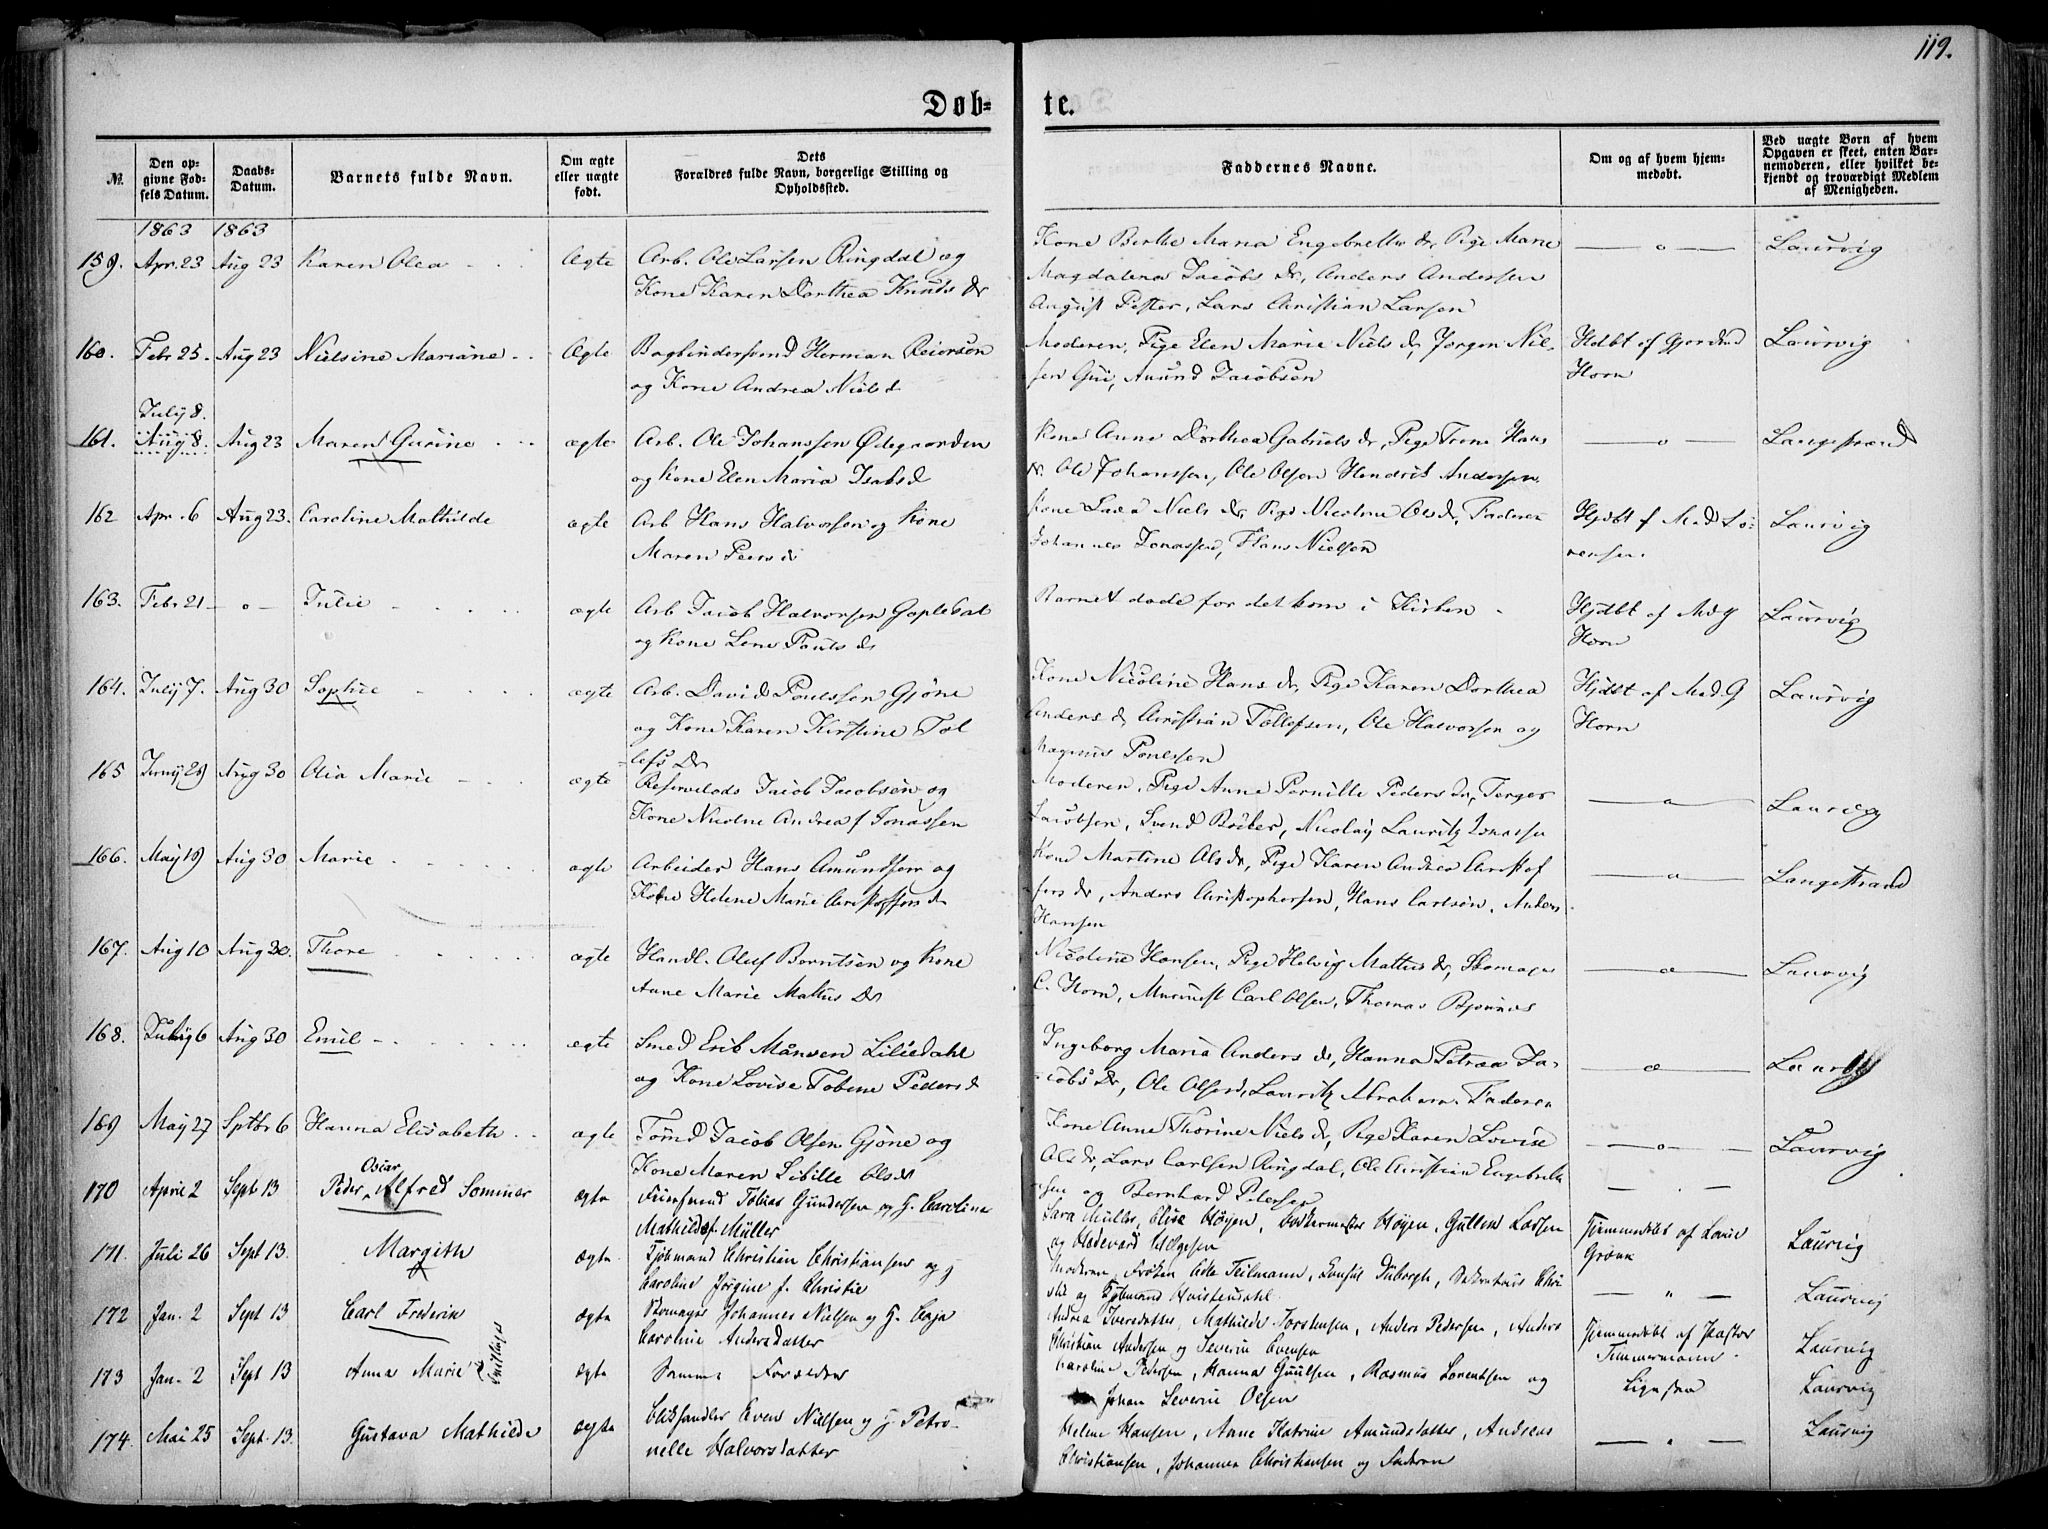 119.
Døb=
te.
№
Den op-
givne Fød-
sels Datum.
Daabs-
Datum.
Barnets fulde Navn.
Om ægte
eller uægte
født.
Dets
Forældres fulde Navn, borgerlige Stilling og
Opholdssted.
Faddernes Navne.
Om og af hvem hjem-
medøbt.
Ved uægte Børn af hvem
Opgaven er skeet, enten Bar-
nemoderen, eller hvilket be-
kjendt og troværdigt Medlem
af Menigheden.
1863 1863
159. Apr. 23 Aug 23 Karen Olea Ægte Arb. Ole Larsen Ringdal og
Kone Karen Dorthea Knuds dr
Kone Berthe Maria dr, Pige Marie
Magdalena Jacobs dr, Anders Andersen
August Lars Christian Larsen
— o — Laurvig
160. Febr 25. Aug 23 Nielsine Mariane Ægte Bogbindersvend Herman Reiersen
og Kone Andrea Niels d
Moderen, Pige Elen Marie Niels d, Jørgen Niel-
sen Amund Jacobsen
Hdbt af Gjordmd
Horn
Laurvig
July 8.
161. Aug 8. Aug 23 Maren Gurine ægte Arb. Ole Johanssen Ødegaarden
og Kone Elen Maria Isaks d
Kone Anne Dorthea Gabriels dr, Pige Trine Hans
dr. Ole Johanssen, Ole Olsen Hendrik Andersen
— o — Langestrand
162 Apr. 6 Aug 23. Caroline Mathilde ægte Arb Hans Halvorsen og Kone
Maren Peers d
Kone Niels dr, Pige Nicoline Ols dr, Faderen
Johannes Jonassen, Hans Nielsen
Hjdbt af Mad Lo-
rensen.
Laurvig
163. Febr 21 — o — Julie ægte Arb Jacob Halvorsen
og Kone Lene Pouls dr
Barnet døde før det kom i Kirken
Hjdbt af Md G
Horn
Laurvig
164. July 7. Aug 30 Sophie ægte Arb. David Poulssen Gjøne
og Kone Karen Kirstine Tol
lefs Dr
Kone Nicoline Hans dr, Pige Karen Dorthea
Anders d, Christian Tollefsen, Ole Halvorsen og
Magnus Poulssen
Hjdbt af Mad. G
Horn
Laurvig
165 Juny 29 Aug 30 Olia Marie ægte Reservelods Jacob Jacobsen og
Kone Nicoline Andrea f Jonassen
Moderen, Pige Anne Pernille Peders dr, Terger
Jacobsen, Svend Nicolay Lauritz Jonassen
— o — Laurvig
166. May 19 Aug 30 Marie ægte Arbeider Hans Amundssen og
Kone Helene Marie Christoffers d
Kone Martine Ols dr, Pige Karen Andrea Christof
fers dr, Anders Christophersen, Hans Carlsen, Anders
Hansen
— o — Langestrand
167. Aug 10 Aug 30. Thore ægte Handl. Oluf Berntsen og Kone
Anne Marie Matius Dr
Nicoline Hansen, Pige Helvig Mattus dr, Skomager
C. Horn, Carl Olsen, Thomas
— o — Laurvig
168. July 6 Aug 30 Emil ægte Smed Erik Månsen Liliedahl
og Kone Lovise Tobine Peders d
Ingeborg Maria Anders dr, Hanna Petrea Ja-
cobs Dr, Ole Olsen, Lauritz Abraham. Faderen
— o — Laurvig
169 May 27 Sptbr 6 Hanna Elisabeth ægte Tømd Jacob Olsen Gjone og
Kone Maren Sibille Ols dr
Kone Anne Thorine Niels dr, Pige Karen Lovise
Ols dr, Lars Carlsen Ringdal, Ole Christian Engebret
sen og Bernhard Petersen
— o — Laurvig
170 April 2 Sept. 13 Peder Oscar Alfred Sommer ægte Feiersvend Tobias Gundersen og H. Caroline
Mathilde f. Müller
Sara Müller, Elise Høyen, Høyen, Gullen Larsen
og Hedevard Helgesen
— . —
171. Juli 26 Sept 13. Margith ægte Tjømand Christian Christiansen og H
Caroline Jørgine f. Christie
Moderen, Frøken Teilmann, Konsul Duborgh, Sekretair Chri
stie og Hvistendahl
Hjemmedøbt af Lovise
Gronn
Laurvig
172 Jan. 2 Sept 13 Carl Frederik ægte Skomager Johannes Nielsen og H. Caja
Caroline Andersdatter
Andrea Iversdatter, Mathilde Torstensen, Anders Pedersen, Anders
Christian Andersen og Severin Evensen
— " — Laurvig
Tvillinger
173 Jan. 2 Sept 13 Anna Marie ægte Samme Forældre
Caroline Pedersen, Hanna Gjuulsen, Rasmus Lorentsen og
Johan Severin Olsen
Hjemmedøbt af Pastor
Timmermann.
Ligesaa
Laurvig
Laurvig
174. Mai 25 Sept. 13. Gustava Mathilde ægte Bliksandler Even Nielsen og H Petro-
nelle Halvorsdatter
Helene Hansen, Anne Katrine Amundsdatter, Andreas
Christiansen, Johannes Christensen og Faderen
— " — Laurvig